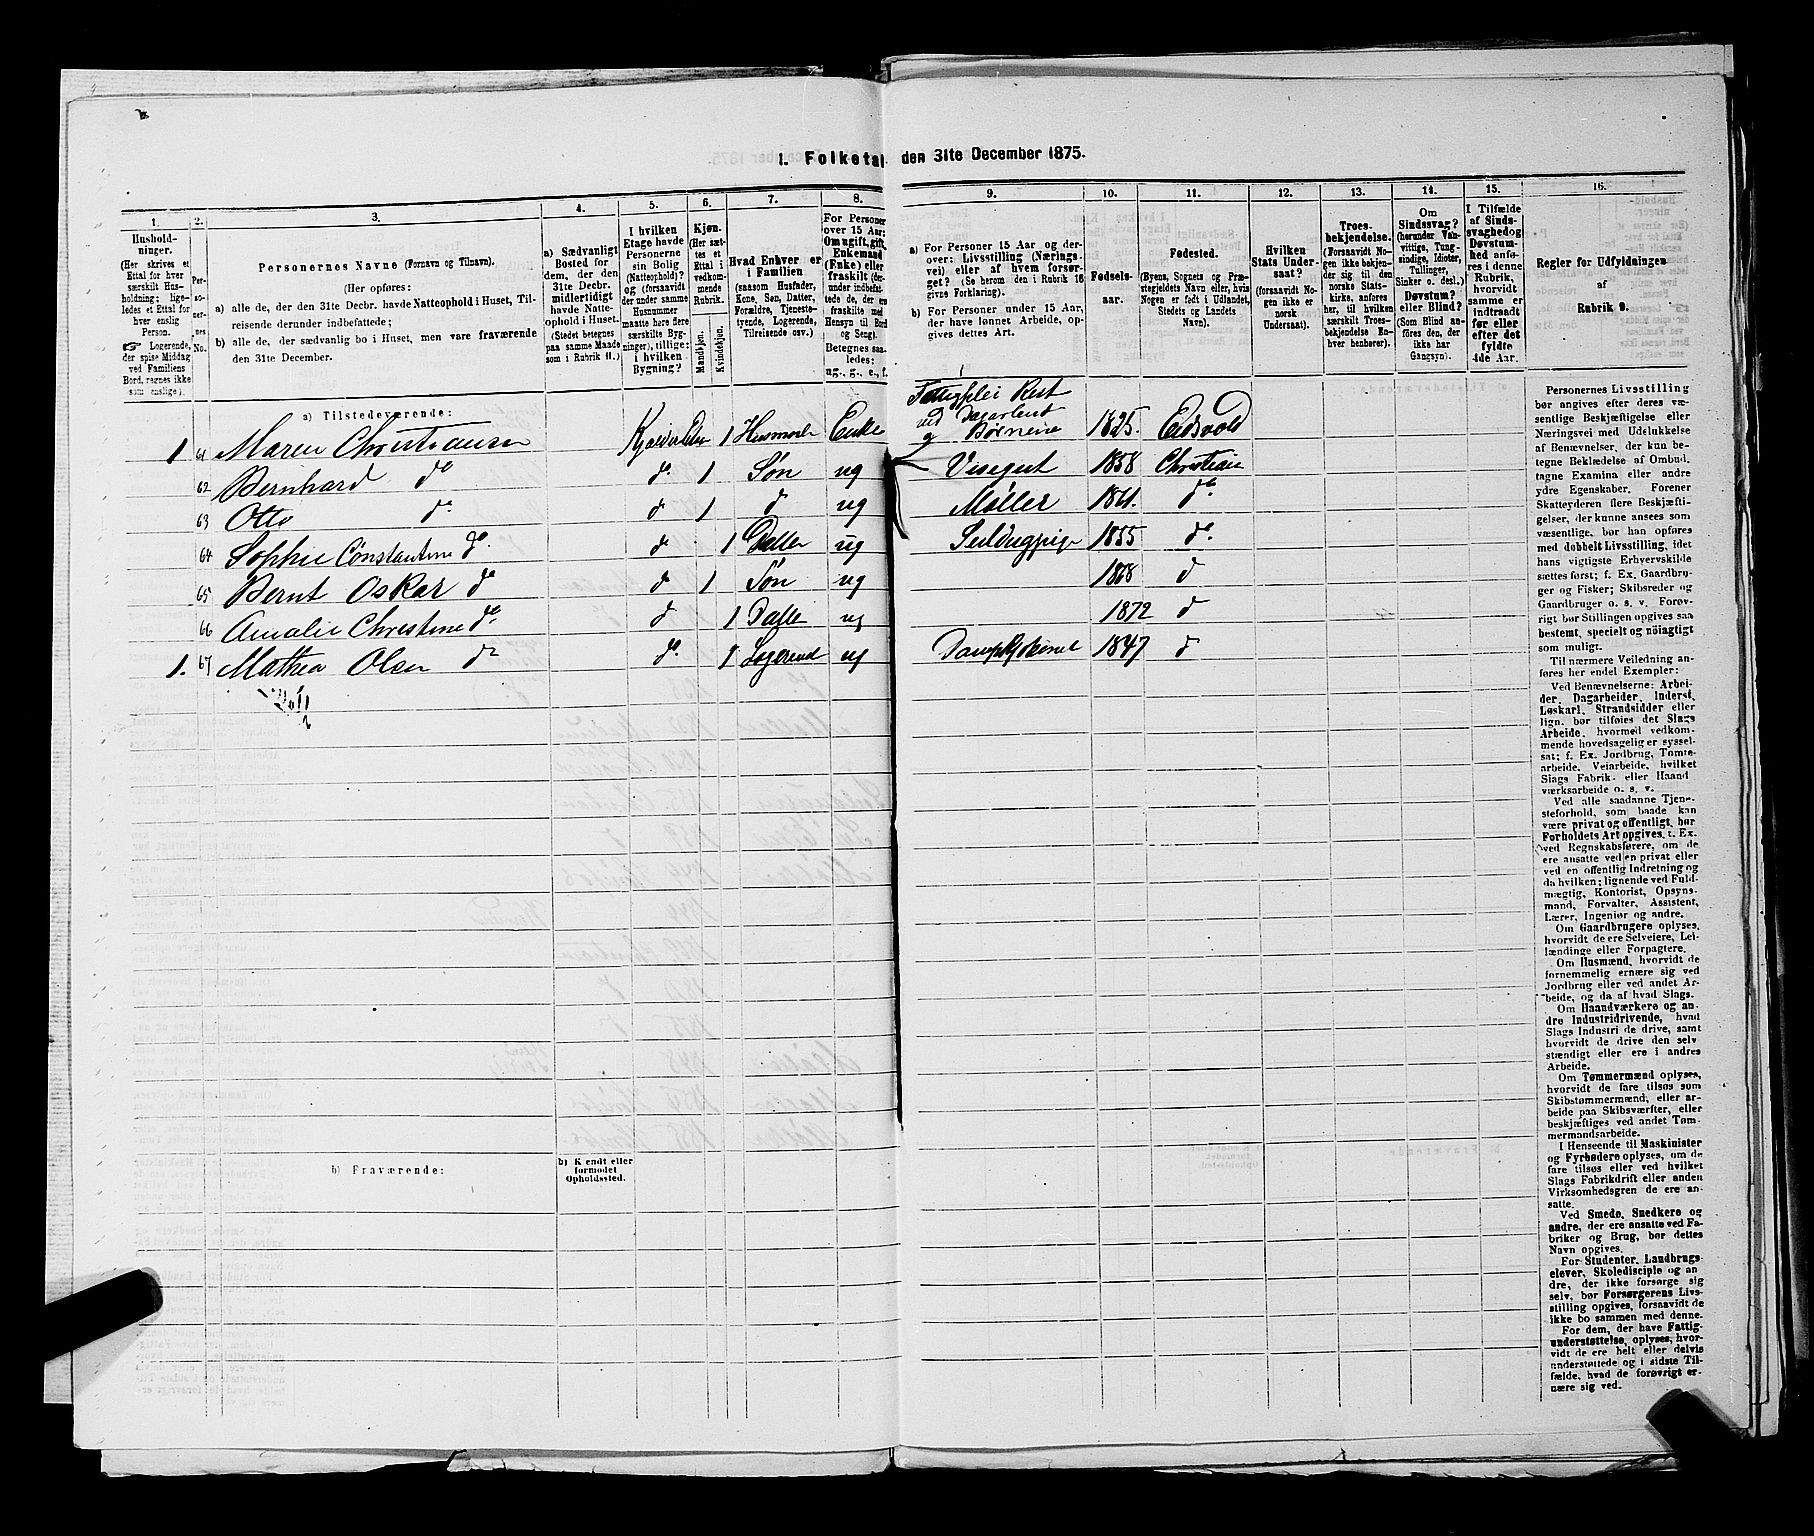 1. Folketal den 31te December 1875.
1. 2. 3. 4. 5. 6. 7. 8. 9. 10. 11. 12. 13. 14. 15. 16.
Hushold-
ninger.
(Her skrives et
Ettal for hver
særskilt Hus-
holdning; lige-
ledes et Ettal for
hver enslig
Person.
☞ Logerende,
der spise Middag
ved Familiens
Bord, regnes ikke
som enslige).
Per-
so-
ner-
nes
No.
Personernes Navne (Fornavn og Tilnavn).
(Her opføres:
a) alle de, der den 31te Decbr. havde Natteophold i Huset, Til-
reisende derunder indbefattede;
b) alle de, der sædvanlig bo i Huset, men vare fraværende
den 31te December.
a) Sædvanligt
Bosted for
dem, der den
31te Decbr.
midlertidigt
havde Natte-
ophold i Huset.
(Stedet betegnes
paa samme Maade
som i Rubrik 11.)
I hvilken
Etage havde
Personerne
sin Bolig
(Natteophold)?
og (forsaavidt
der under samme
Husnummer
maatte høre flere
særskilte Byg-
ninger), tillige:
i hvilken
Bygning?
Kjøn.
(Her sæt-
tes et
Ettal i
vedkom-
mende
Rubrik.
Mandkjøn.
Kvindekjøn.
Hvad Enhver er
i Familien
(saasom Husfader,
Kone, Søn, Datter,
Forældre, Tjeneste-
tyende, Logerende,
Tilreisende osv.)
For Personer
over 15 Aar:
Om ugift, gift,
Enkemand
(Enke) eller
fraskilt (der-
under indbefat-
tede de, der ere
fraskilte med
Hensyn til Bord
og Seng).
Betegnes saa-
ledes:
ug., g., e., f.
a) For Personer 15 Aar og der-
over: Livsstilling (Nærings-
vei) eller af hvem forsør-
get? (Se herom den i Rubrik 16
givne Forklaring).
b) For Personer under 15 Aar,
der have lønnet Arbeide, op-
gives dettes Art.
Fødsels-
aar.
Fødested.
(Byens, Sognets og Præ-
stegjeldets Navn eller, hvis
Nogen er født i Udlandet,
Stedets og Landets
Navn).
Hvilken
Stats Under-
saat?
(forsaavidt No-
gen ikke er
norsk
Undersaat).
Troes-
bekjendelse.
(Forsaavidt No-
gen ikke bekjen-
der sig til den
norske Stats-
kirke, anføres
her, til hvilken
særskilt Troes-
bekjendelse En-
hver henhører).
Om
Sindssvag?
(herunder Van-
vittige, Tung-
sindige, Idioter,
Tullinger,
Sinker o. desl.).
Døvstum?
eller Blind?
(Som Blind an-
føres den, der
ikke har
Gangsyn).
I Tilfælde
af Sinds-
svaghed og
Døvstum-
hed anfø-
res i denne
Rubrik,
hvorvidt
samme er
indtraadt
før eller
efter det
fyldte
4de Aar.
Regler for Udfyldningen
af
Rubrik 9.
a) Tilstedeværende:
1 61 Maren Christiansen Kjælder 1 Husmoder Enke ved Dagarbeid Børnene 1825. Eidsvold
62 Bernhard do do. 1 Søn ug Visergut 1858 Christian
63 Otto do d 1 d ug Møller 1861. do
64 Sophie Constantine do. d 1 Datter ug 1855 do
65 Bernt Oskar do d 1 Søn ug 1868 d
66 Amalie Christine do d 1 Datter ug 1872 d
1. 67 Mathea Olsen do do. 1 Logerend ug 1847 d
b) Fraværende:
b) Kjendt eller
formodet
Opholdssted.
Personernes Livsstilling
bør angives efter deres væ-
sentlige Beskjæftigelse eller
Næringsvei med Udelukkelse
af Benævnelser, der kun be-
tegne Beklædelse af Ombud,
tagne Examina eller andre
ydre Egenskaber. Forener
Skatteyderen flere Beskjæfti-
gelser, der kunne ansees som
væsentlige, bør han opføres
med dobbelt Livsstilling, idet
hans vigtigste Erhvervskilde
sættes først; f. Ex. Gaardbru-
ger og Fisker; Skibsreder og
Gaardbruger o. s. v. Forøv-
rigt bør Stillingen opgives saa
bestemt, specielt og nøiagtigt
som muligt.
Til nærmere Veiledning an-
føres her endel Exempler:
Ved Benævnelserne: Arbei-
der, Dagarbeider, Inderst,
Løskarl, Strandsidder eller
lign. bør tilføies det Slags
Arbeide, hvormed vedkom-
mende hovedsagelig er syssel-
sat; f. Ex. Jordbrug, Tomte-
arbeide, Veiarbeide, hvilket
Slags Fabrik- eller Haand
værksarbeide o. s. v.
Ved alle saadanne Tjene-
steforhold, som baade kan
være privat og offentligt, bør
Forholdets Art opgives, t. Ex.
ved Regnskabsførere, om de
ere ansatte ved en privat eller
ved en offentlig Indretning og
da hvilken; lignende ved Fuld-
mægtig, Kontorist, Opsyns-
mand, Forvalter, Assistent,
Lærer, Ingeniør og andre.
Om Gaardbrugere oplyses,
hvorvidt de ere Selveiere, Lei-
lændinge eller Forpagtere.
Om Husmænd, hvorvidt de
fornemmelig ernære sig ved
Jordbrug eller ved andet Ar-
beide, og da af hvad Slags.
Om Haandværkere og an-
dre Industridrivende, hvad
Slags Industri de drive, samt
hvorvidt de drive den selv
stændigt eller ere i andres
Arbeide.
Om Tømmermænd oplyses,
hvorvidt de fare tilsøs som
Skibstømmermænd, eller ar-
beide paa Skibsværfter, eller
beskjæftiges ved andet Tøm-
mermandsarbeide.
I Henseende til Maskinister
og Fyrbødere oplyses, om de
fare tilsøs eller ved hvilket
Slags Fabrikdrift eller anden
Virksomhedsgren de ere an-
satte.
Ved Smede, Snedkere og
andre, der ere ansatte ved Fa-
briker og Brug, bør dettes
Navn opgives.
For Studenter, Landbrugs-
elever, Skoledisciple og an
dre, der ikke forsørge sig
selv, bør Forsørgerens Livs-
stilling opgives, forsaavidt de
ikke bo sammen med denne.
For dem, der have Fattig-
understøttelse, oplyses, hvor-
vidt de ere helt eller delvis
understøttede og i sidste Til-
fælde, hvad de forøvrigt er-
nære sig ved.